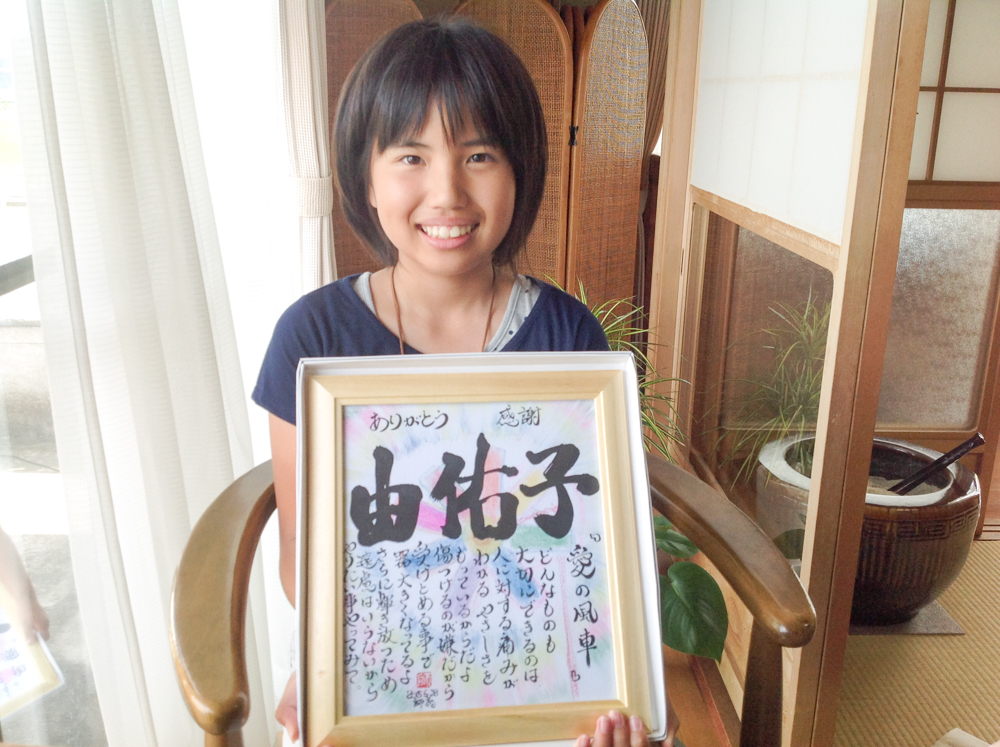 ありがとう 感謝
由佑子
"愛の風車"
どんなものも
大切にできるのは
人に対する痛みが
わかる やさしさを
もっているからだよ
傷つけるのが嫌だから
受けとめる事で
器大きくなってるよ
さらに輝き放つため
遠慮はいらないから
やりたい事やってみて。